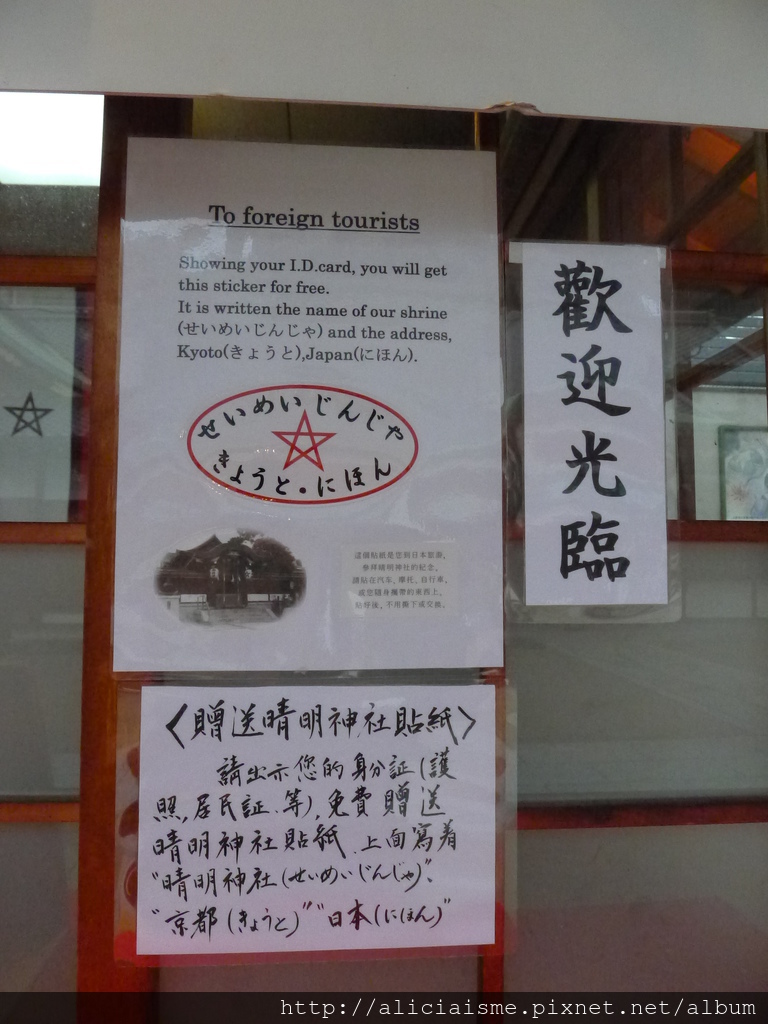 To foreign tourists
Showing your I.D.card, you will get
this sticker for free.
It is written the name of our shrine
(せいめいじんじゃ) and the address,
Kyoto(きょうと),Japan(にほん).
せいめいじんじゃ
きょうと。にほん
這個貼紙是您到日本旅游,
參拜晴明神社的紀念。
請貼在汽车、摩托、自行車、
或您隨身攜帶的東西上。
貼好後、不用撕下或交換。
歡迎光臨
〈贈送晴明神社貼紙〉
請出示您的身分証(護
照,居民証.等),免費贈送
晴明神社貼紙.上面寫着
"晴明神社(せいめいじんじゃ)"、
"京都(きょうと)""日本(にほん)"
http://aliciaisme.pixnet.net/album